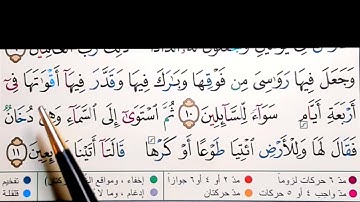 وَجَعَلَ فِيهَا رَوَٰسِىَ مِن فَوْقِهَا وَبَٰرَكَ فِيهَا وَقَدَّرَ فِيهَآ أَقْوَٰتَهَا فِىٓ
أَرْبَعَةِ أَيَّامٍ سَوَآءً لِّلسَّآئِلِينَ ١٠ ثُمَّ ٱسْتَوَىٰٓ إِلَى ٱلسَّمَآءِ وَهِىَ دُخَانٌ
فَقَالَ لَهَا وَلِلْأَرْضِ ٱئْتِيَا طَوْعًا أَوْ كَرْهًا قَالَتَآ أَتَيْنَا طَآئِعِينَ ١١
مدّ ٦ حركات لزوماً مدّ ٢ أو ٤ أو ٦ جوازاً إخفاء، ومواقع تفخيم
مدّ واجب ٤ أو ٥ حركات مدّ حركتان إدغام، وما لا قلقلة